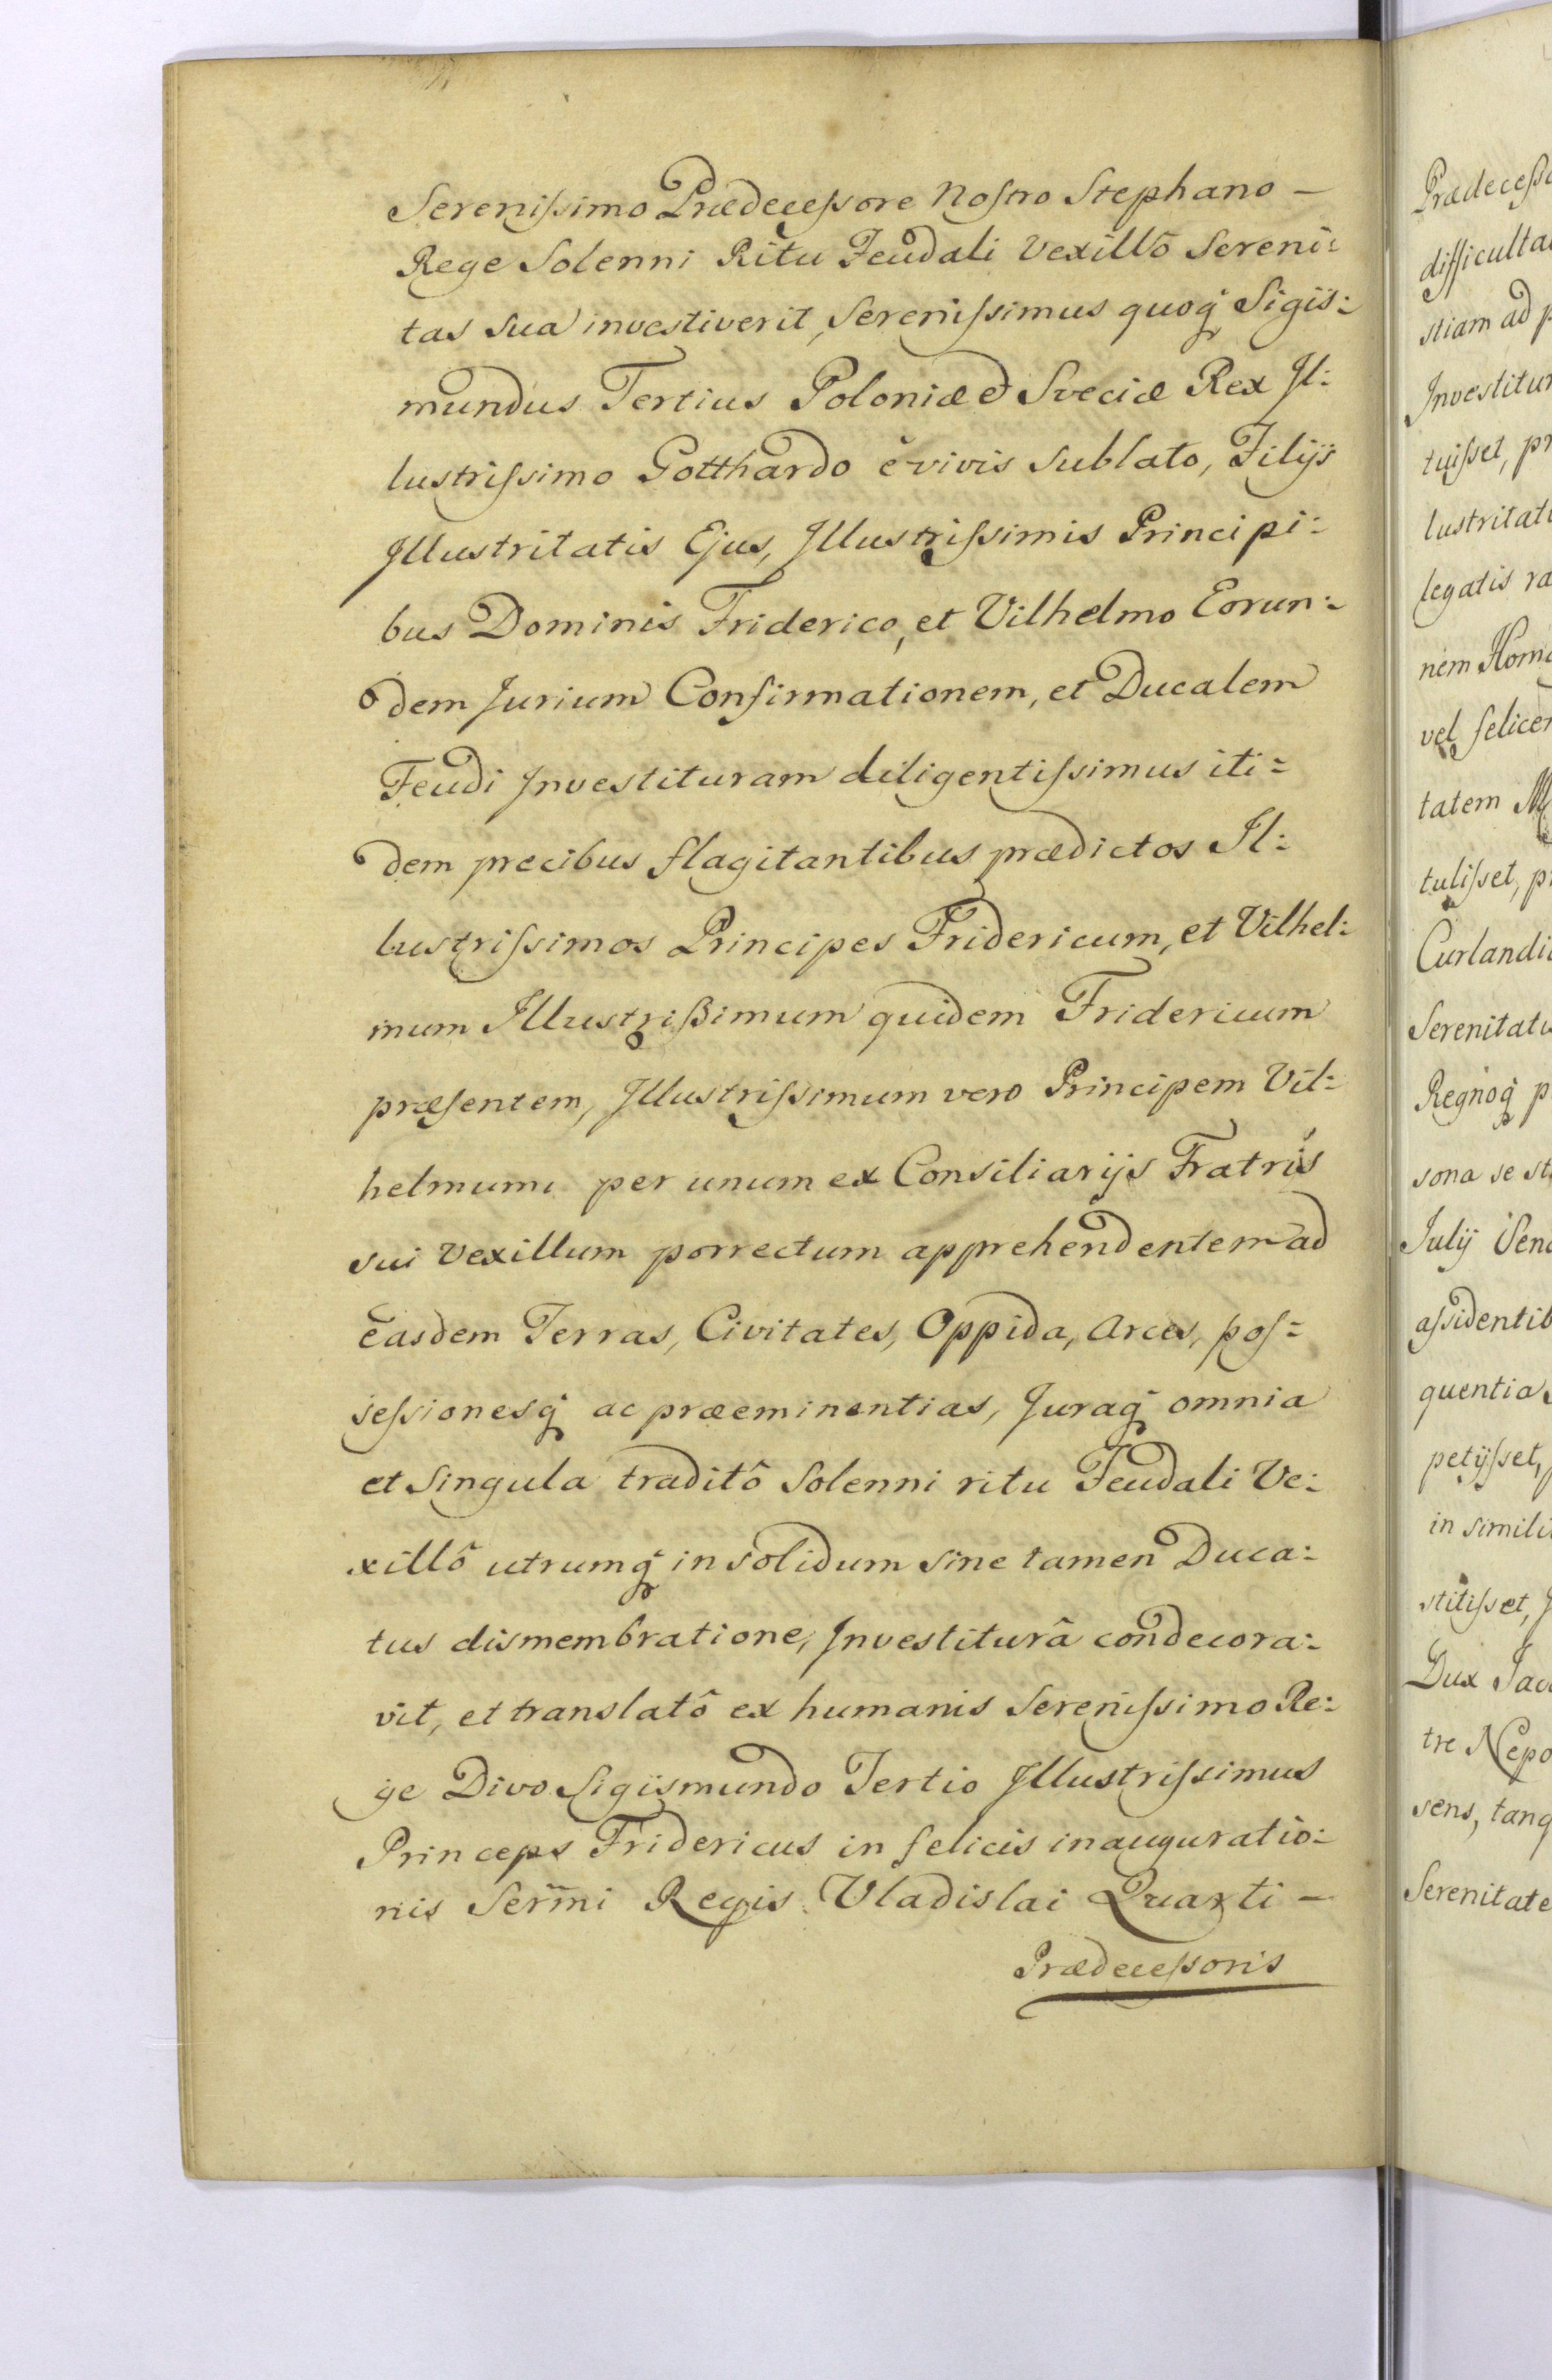 Sereniſsimo Prædeceſsore Noſtro Stephano –
Rege Solenni Ritu Feudali Vexillô Sereni:
tas Sua investiverit, Sereniſsimus quoq Sigis:
mundus Tertius Poloniæ & Sveciæ Rex Il:
lustriſsimo Gotthardo è vivis Sublato, Filijs
Illustritatis Ejus, Illustriſsimis Principi:
bus Dominis Friderico, et Vilhelmo Eorun:
dem Jurium Confirmationem, et Ducalem
Feudi Investituram diligentiſsimus iti=
dem precibus flagitantibus prædictos Il:
lustriſsimos Principes Fridericum, et Vilhel:
mum Illustrißimum quidem Fridericum
præsentem, Illustriſsimum vero Principem Vil:
helmum per unum ex Consiliarijs Fratris
sui Vexillum porrectum apprehendentem ad
easdem Terras, Civitates, Oppida, Arces, poſ=
seſsionesq ac præeminentias, Juraq omnia
et Singula traditô Solenni ritu Feudali Ve:
xillô utrumq in solidum sine tamen Duca:
tus dismembratione, Investiturâ condecora:
vit, et translatô ex humanis Sereniſsimo Re:
ge Divo Sigismundo Tertio Illustriſsimus
Princeps Fridericus in felicis inauguratio:
nis Serm̃i Regis Vladislai Quarti –
Prædeceſsoris
Prædeceſs
difficulta
stiam ad p
Investitur
tuiſset, pr
lustritati
legatis ra
nem Hom
vel felicer
tatem M
tuliſset, p
Curlandi
Serenitati
Regnoq p
sona se st
Julij Sen
aſsidentib
quentia
petijſset,
in simili
stitiſset, J
Dux Jac
tre Nepo
sens, tanq
Serenitate